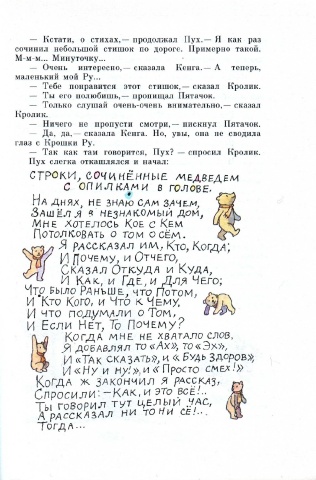 — Кстати, о стихах,— продолжал Пух.— Я как раз
сочинил небольшой стишок по дороге. Примерно такой.
М-м-м... Минуточку...
— Очень интересно,— сказала Кенга.— А теперь,
маленький мой Ру...
— Тебе понравится этот стишок,— сказал Кролик.
— Ты его полюбишь,— пропищал Пятачок.
— Только слушай очень-очень внимательно,— сказал
Кролик.
— Ничего не пропусти смотри,— пискнул Пятачок.
— Да, да,— сказала Кенга. Но, увы, она не сводила
глаз с Крошки Ру.
— Так как там говорится, Пух? — спросил Кролик.
Пух слегка откашлялся и начал:
СТРОКИ, СОЧИНЁННЫЕ МЕДВЕДЕМ
С ОПИЛКАМИ В ГОЛОВЕ.
НА ДНЯХ, НЕ ЗНАЮ САМ ЗАЧЕМ,
ЗАШЁЛ Я В НЕЗНАКОМЫЙ ДОМ,
МНЕ ХОТЕЛОСЬ КОЕ С КЕМ
ПОТОЛКОВАТЬ О ТОМ О СЁМ.
Я РАССКАЗАЛ ИМ, КТО, КОГДА,
И ПОЧЕМУ, И ОТЧЕГО,
СКАЗАЛ ОТКУДА И КУДА,
И КАК, И ГДЕ, И ДЛЯ ЧЕГО;
ЧТО БЫЛО РАНЬШЕ, ЧТО ПОТОМ,
И КТО КОГО, И ЧТО К ЧЕМУ,
И ЧТО ПОДУМАЛИ О ТОМ,
И ЕСЛИ НЕТ, ТО ПОЧЕМУ?
КОГДА МНЕ НЕ ХВАТАЛО СЛОВ,
Я ДОБАВЛЯЛ ТО «АХ», ТО «ЭХ»,
И «ТАК СКАЗАТЬ», И «БУДЬ ЗДОРОВ»,
И «НУ И НУ!», И «ПРОСТО СМЕХ!»
КОГДА Ж ЗАКОНЧИЛ Я РАССКАЗ,
СПРОСИЛИ: —КАК, И ЭТО ВСЁ?..
ТЫ ГОВОРИЛ ТУТ ЦЕЛЫЙ ЧАС,
А РАССКАЗАЛ НИ ТО НИ СЁ!..
ТОГДА...